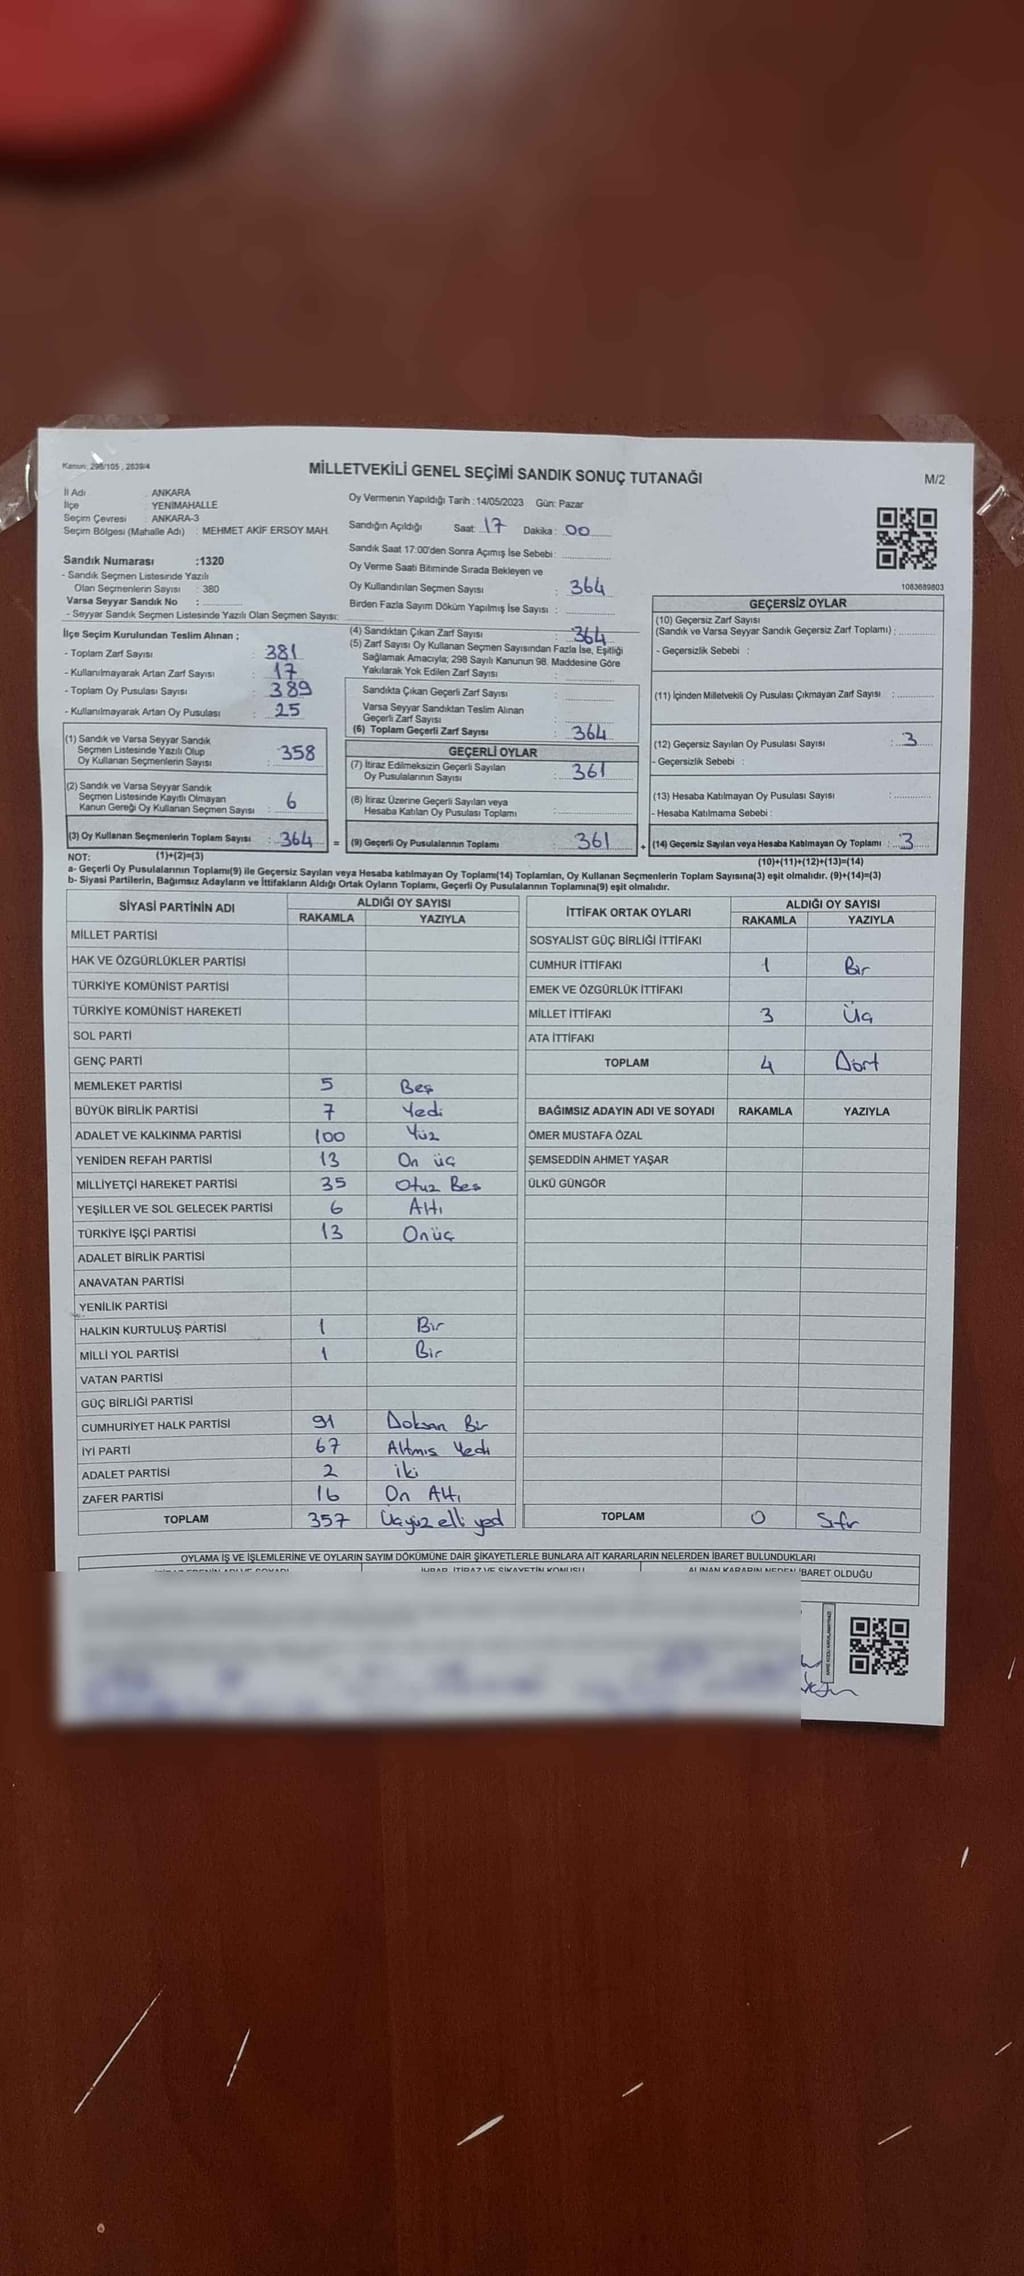 Kanun: 298/105 , 2839/4
MİLLETVEKİLİ GENEL SEÇİMİ SANDIK SONUÇ TUTANAĞI
M/2
İl Adı : ANKARA
İlçe : YENİMAHALLE
Seçim Çevresi : ANKARA-3
Seçim Bölgesi (Mahalle Adı) : MEHMET AKİF ERSOY MAH.
Oy Vermenin Yapıldığı Tarih : 14/05/2023 Gün: Pazar
Sandığın Açıldığı Saat: 17 Dakika : 00
Sandık Saat 17:00'den Sonra Açımış İse Sebebi :
Oy Verme Saati Bitiminde Sırada Bekleyen ve
Oy Kullandırılan Seçmen Sayısı : 364
Birden Fazla Sayım Döküm Yapılmış İse Sayısı :
1083689803
Sandık Numarası :1320
- Sandık Seçmen Listesinde Yazılı
Olan Seçmenlerin Sayısı : 380
Varsa Seyyar Sandık No :
- Seyyar Sandık Seçmen Listesinde Yazılı Olan Seçmen Sayısı:
İlçe Seçim Kurulundan Teslim Alınan ;
- Toplam Zarf Sayısı : 381
- Kullanılmayarak Artan Zarf Sayısı : 17
- Toplam Oy Pusulası Sayısı : 389
- Kullanılmayarak Artan Oy Pusulası : 25
(1) Sandık ve Varsa Seyyar Sandık
Seçmen Listesinde Yazılı Olup
Oy Kullanan Seçmenlerin Sayısı : 358
(2) Sandık ve Varsa Seyyar Sandık
Seçmen Listesinde Kayıtlı Olmayan
Kanun Gereği Oy Kullanan Seçmen Sayısı : 6
(3) Oy Kullanan Seçmenlerin Toplam Sayısı : 364 =
(1)+(2)=(3)
(4) Sandıktan Çıkan Zarf Sayısı : 364
(5) Zarf Sayısı Oy Kullanan Seçmen Sayısından Fazla İse, Eşitliği
Sağlamak Amacıyla; 298 Sayılı Kanunun 98. Maddesine Göre
Yakılarak Yok Edilen Zarf Sayısı :
Sandıkta Çıkan Geçerli Zarf Sayısı :
Varsa Seyyar Sandıktan Teslim Alınan
Geçerli Zarf Sayısı :
(6) Toplam Geçerli Zarf Sayısı : 364
GEÇERLİ OYLAR
(7) İtiraz Edilmeksizin Geçerli Sayılan
Oy Pusulalarının Sayısı : 361
(8) İtiraz Üzerine Geçerli Sayılan veya
Hesaba Katılan Oy Pusulası Toplamı :
(9) Geçerli Oy Pusulalarının Toplamı : 361 +
GEÇERSİZ OYLAR
(10) Geçersiz Zarf Sayısı
(Sandık ve Varsa Seyyar Sandık Geçersiz Zarf Toplamı) :
- Geçersizlik Sebebi :
(11) İçinden Milletvekili Oy Pusulası Çıkmayan Zarf Sayısı :
(12) Geçersiz Sayılan Oy Pusulası Sayısı : 3
- Geçersizlik Sebebi :
(13) Hesaba Katılmayan Oy Pusulası Sayısı :
- Hesaba Katılmama Sebebi :
(14) Geçersiz Sayılan veya Hesaba Katılmayan Oy Toplamı : 3
(10)+(11)+(12)+(13)=(14)
NOT:
a- Geçerli Oy Pusulalarının Toplamı(9) ile Geçersiz Sayılan veya Hesaba katılmayan Oy Toplamı(14) Toplamları, Oy Kullanan Seçmenlerin Toplam Sayısına(3) eşit olmalıdır. (9)+(14)=(3)
b- Siyasi Partilerin, Bağımsız Adayların ve İttifakların Aldığı Ortak Oyların Toplamı, Geçerli Oy Pusulalarının Toplamına(9) eşit olmalıdır.
SİYASİ PARTİNİN ADI ALDIĞI OY SAYISI
RAKAMLA YAZIYLA
MİLLET PARTİSİ
HAK VE ÖZGÜRLÜKLER PARTİSİ
TÜRKİYE KOMÜNİST PARTİSİ
TÜRKİYE KOMÜNİST HAREKETİ
SOL PARTİ
GENÇ PARTİ
MEMLEKET PARTİSİ 5 Beş
BÜYÜK BİRLİK PARTİSİ 7 Yedi
ADALET VE KALKINMA PARTİSİ 100 Yüz
YENİDEN REFAH PARTİSİ 13 On üç
MİLLİYETÇİ HAREKET PARTİSİ 35 Otuz Beş
YEŞİLLER VE SOL GELECEK PARTİSİ 6 Altı
TÜRKİYE İŞÇİ PARTİSİ 13 Onüç
ADALET BİRLİK PARTİSİ
ANAVATAN PARTİSİ
YENİLİK PARTİSİ
HALKIN KURTULUŞ PARTİSİ 1 Bir
MİLLİ YOL PARTİSİ 1 Bir
VATAN PARTİSİ
GÜÇ BİRLİĞİ PARTİSİ
CUMHURİYET HALK PARTİSİ 91 Doksan Bir
İYİ PARTİ 67 Altmış Yedi
ADALET PARTİSİ 2 iki
ZAFER PARTİSİ 16 On Altı
TOPLAM 357 Üçyüz elli yed
İTTİFAK ORTAK OYLARI ALDIĞI OY SAYISI
RAKAMLA YAZIYLA
SOSYALİST GÜÇ BİRLİĞİ İTTİFAKI
CUMHUR İTTİFAKI 1 Bir
EMEK VE ÖZGÜRLÜK İTTİFAKI
MİLLET İTTİFAKI 3 Üç
ATA İTTİFAKI
TOPLAM 4 Dört
BAĞIMSIZ ADAYIN ADI VE SOYADI RAKAMLA YAZIYLA
ÖMER MUSTAFA ÖZAL
ŞEMSEDDİN AHMET YAŞAR
ÜLKÜ GÜNGÖR
TOPLAM 0 Sıfır
OYLAMA İŞ VE İŞLEMLERİNE VE OYLARIN SAYIM DÖKÜMÜNE DAİR ŞİKAYETLERLE BUNLARA AİT KARARLARIN NELERDEN İBARET BULUNDUKLARI
İHBAR, İTİRAZ VE ŞİKAYETİN KONUSU ALINAN KARARIN NEDEN İBARET OLDUĞU